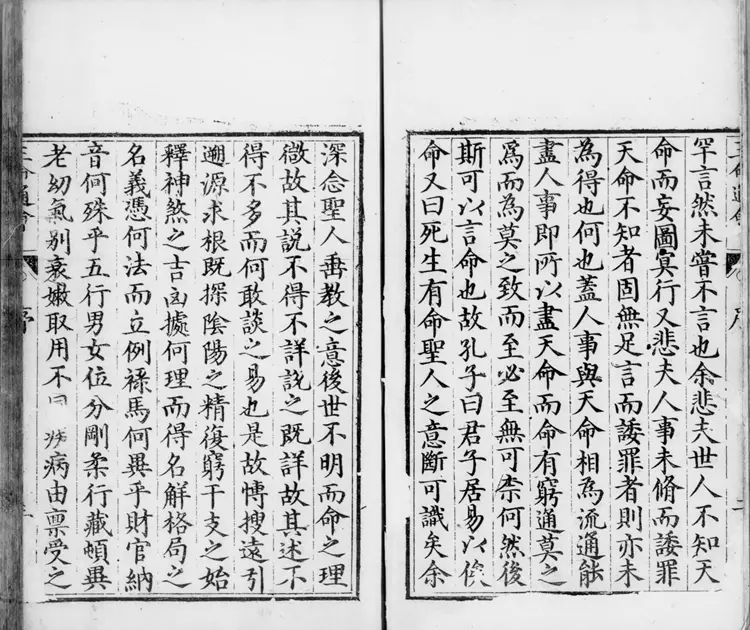 罕言然未嘗不言也余悲夫世人不知天
命而妄圖冥行又悲夫人事未脩而諉罪
天命不知者固無足言而諉罪者則亦未
為得也何也蓋人事與天命相為流通能
盡人事即所以盡天命而命有窮通莫之
爲而為莫之致而至必至無可柰何然後
斯可以言命也故孔子曰君子居易以俟
命又曰死生有命聖人之意斷可識矣余
三命通會
序
深念聖人垂教之意後世不明而命之理
微故其說不得不詳說之既詳故其述不
得不多而何敢談之易也是故愽搜遠引
遡源求根既探陰陽之精復窮干支之始
釋神煞之吉凶據何理而得名解格局之
名義憑何法而立例祿馬何異乎財官納
音何殊乎五行男女位分剛柔行藏頓異
老幼氣別衰嫩取用不 病由禀受之
三命通會
序
三